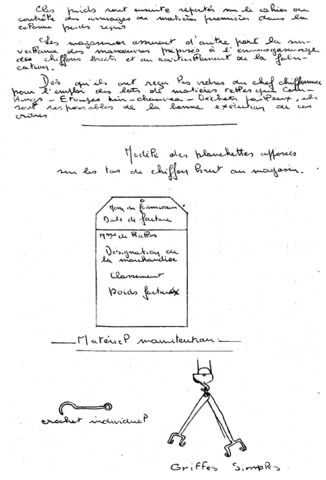 Ces poids sont ensuite reportés sur le cahier de
contrôle des arrivages de matières premières dans la
colonne poids reçus
Les magasiniers assurent d'autre part la sur-
veillance des manœuvres préposés à l'emmagasinage
des chiffons bruts et au ravitaillement de la fabri-
cation.
Dès qu'ils ont reçu les ordres du chef chiffonnier
pour l'emploi des lots de matières telles que
Etoupes Déchets ils
sont responsables de la bonne exécution de ces
ordres
Modèle des planchettes apposées
sur les tas de chiffon brut au magasin.
Nom du fournisseur
Date de facture
Nbre de Balles
Désignation de
la marchandise
Classement
Poids facturé
Matériel manutention
crochet individuel
Griffes Simples